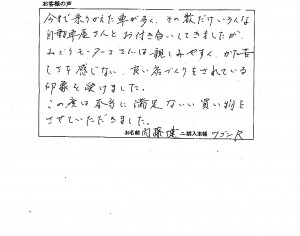 お客様の声
今まで乗りかえた車が多く、その数だけいろんな
自動車屋さんとお付き合いしてきましたが、
みどりモータースさんは親しみやすく、かた苦
しさを感じない、良い店づくりをされている
印象を受けました。
この度は本当に満足ないい買い物を
させていただきました。
お名前 内藤 健二 購入車種 ワゴンR